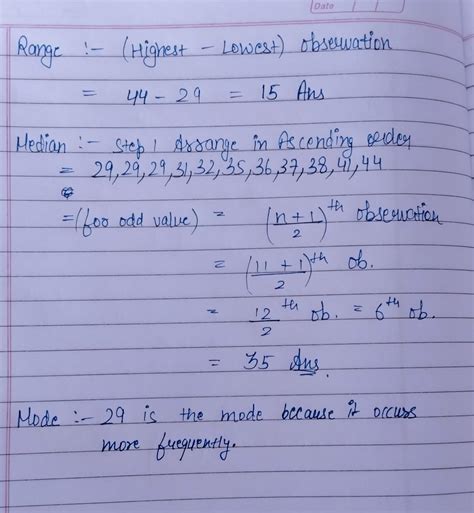 Date
Range :- (Highest - Lowest) observation
= 44 - 29 = 15 Ans
Median :- Step 1 Arrange in Ascending order
= 29, 29, 29, 31, 32, 35, 36, 37, 38, 41, 44
= (foo odd value) = (n + 1 / 2)th observation
= (11 + 1 / 2)th ob.
= 12/2 th ob. = 6th ob.
= 35 Ans.
Mode :- 29 is the mode because it occurs
more frequently.